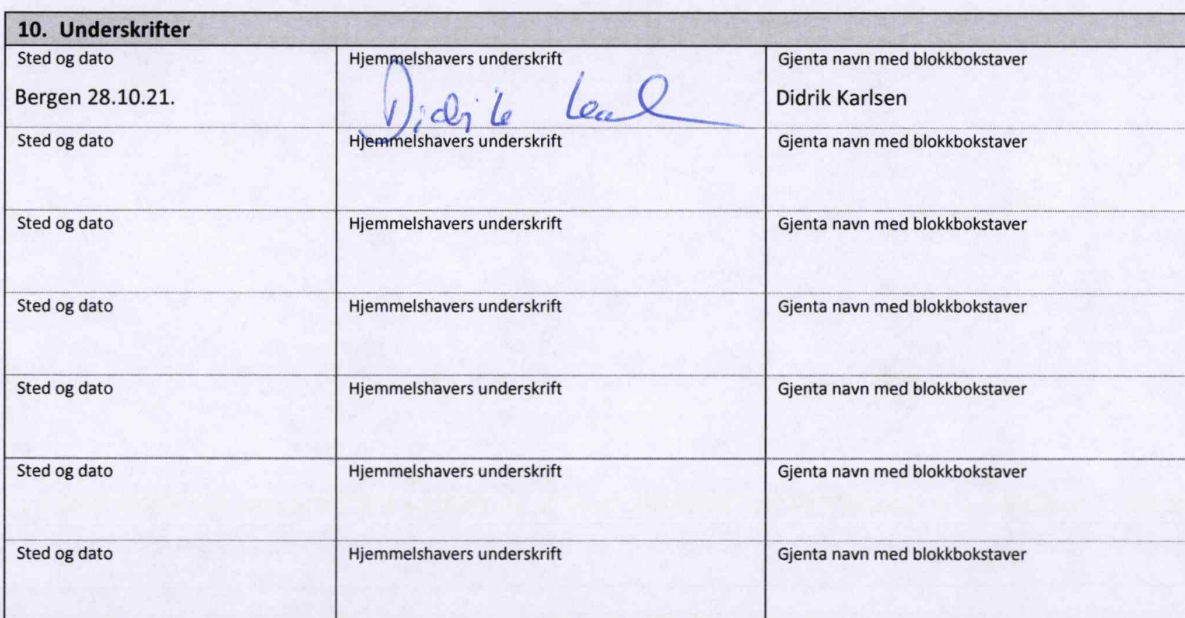 10. Underskrifter
Sted og dato Hjemmelshavers underskrift Gjenta navn med blokkbokstaver
Bergen 28.10.21. Didrik Didrik Karlsen
Sted og dato Hjemmelshavers underskrift Gjenta navn med blokkbokstaver
Sted og dato Hjemmelshavers underskrift Gjenta navn med blokkbokstaver
Sted og dato Hjemmelshavers underskrift Gjenta navn med blokkbokstaver
Sted og dato Hjemmelshavers underskrift Gjenta navn med blokkbokstaver
Sted og dato Hjemmelshavers underskrift Gjenta navn med blokkbokstaver
Sted og dato Hjemmelshavers underskrift Gjenta navn med blokkbokstaver